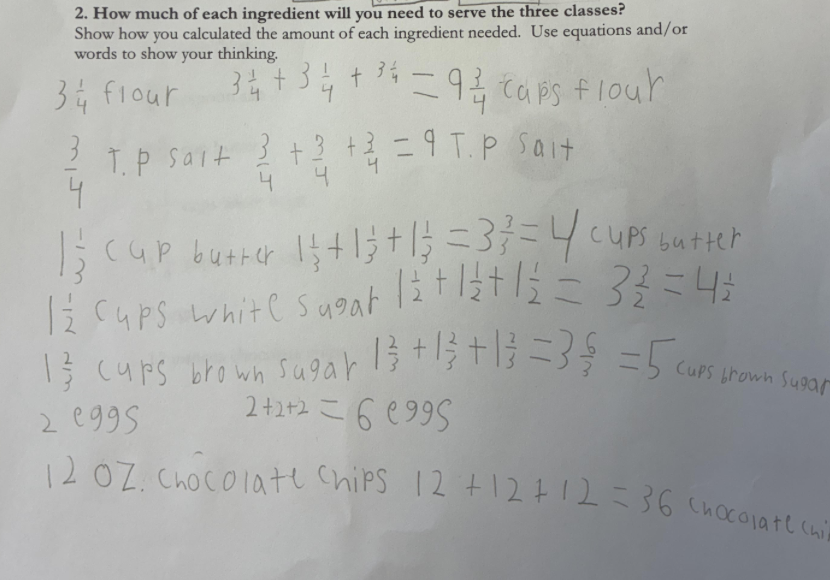 2. How much of each ingredient will you need to serve the three classes?
Show how you calculated the amount of each ingredient needed. Use equations and/or
words to show your thinking.
3 1/4 flour 3 1/4 + 3 1/4 + 3 1/4 = 9 3/4 cups flour
3/4 T.P salt 3/4 + 3/4 + 3/4 = 9 T.P salt
1 1/3 cup butter 1 1/3 + 1 1/3 + 1 1/3 = 3 3/3 = 4 cups butter
1 1/2 cups white sugar 1 1/2 + 1 1/2 + 1 1/2 = 3 3/2 = 4 1/2
1 2/3 cups brown sugar 1 2/3 + 1 2/3 + 1 2/3 = 3 6/3 = 5 cups brown sugar
2 eggs 2+2+2 = 6 eggs
12 OZ. chocolate chips 12 + 12 + 12 = 36 chocolate chi